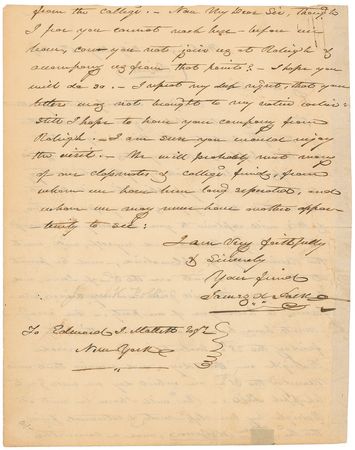 from the college. - Now My Dear Sir, though
I fear you cannot reach here before we
leave, can you not join us at Raleigh &
accompany us from that point? - I hope you
will do so. - I repeat my deep regret, that your
letter was not brought to my notice earlier:
still I hope to have your company from
Raleigh. - I am sure you would enjoy
the visit. - We will probably meet many
of our classmates & college friends, from
whom we have been long separated, and
whom we may never have another oppor-
tunity to see:
I am Very faithfully
& Sincerely
Your friend
James K Polk
To Edward J. Mallett Esqr.
New York